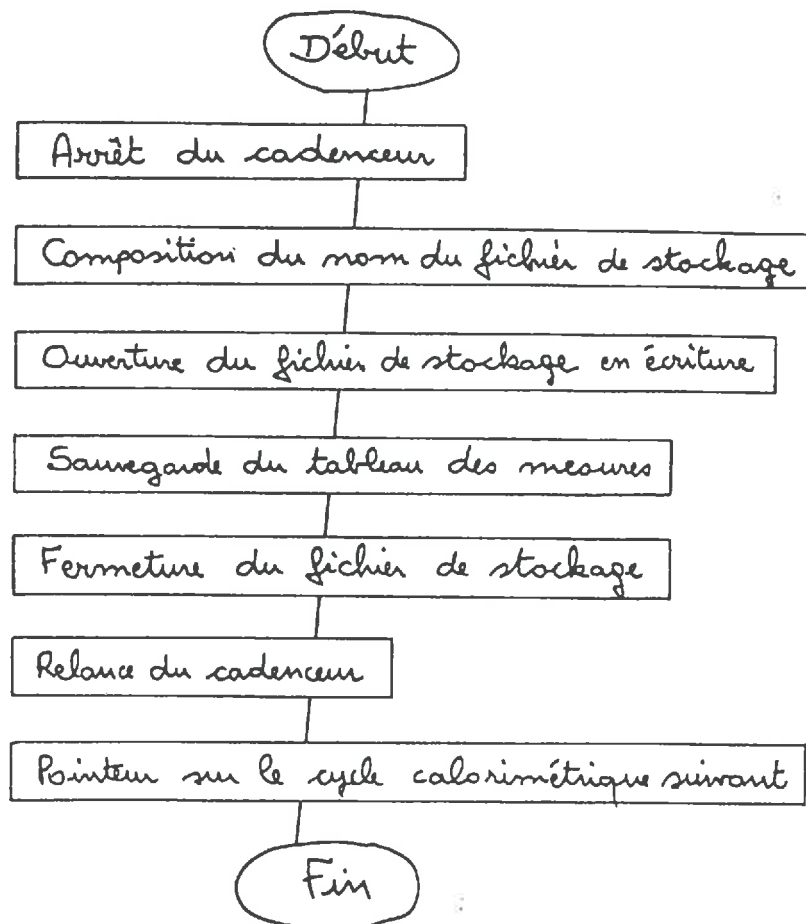 Début
Arrêt du cadenceur
Composition du nom du fichier de stockage
Ouverture du fichier de stockage en écriture
Sauvegarde du tableau des mesures
Fermeture du fichier de stockage
Relance du cadenceur
Pointeur sur le cycle calorimétrique suivant
Fin